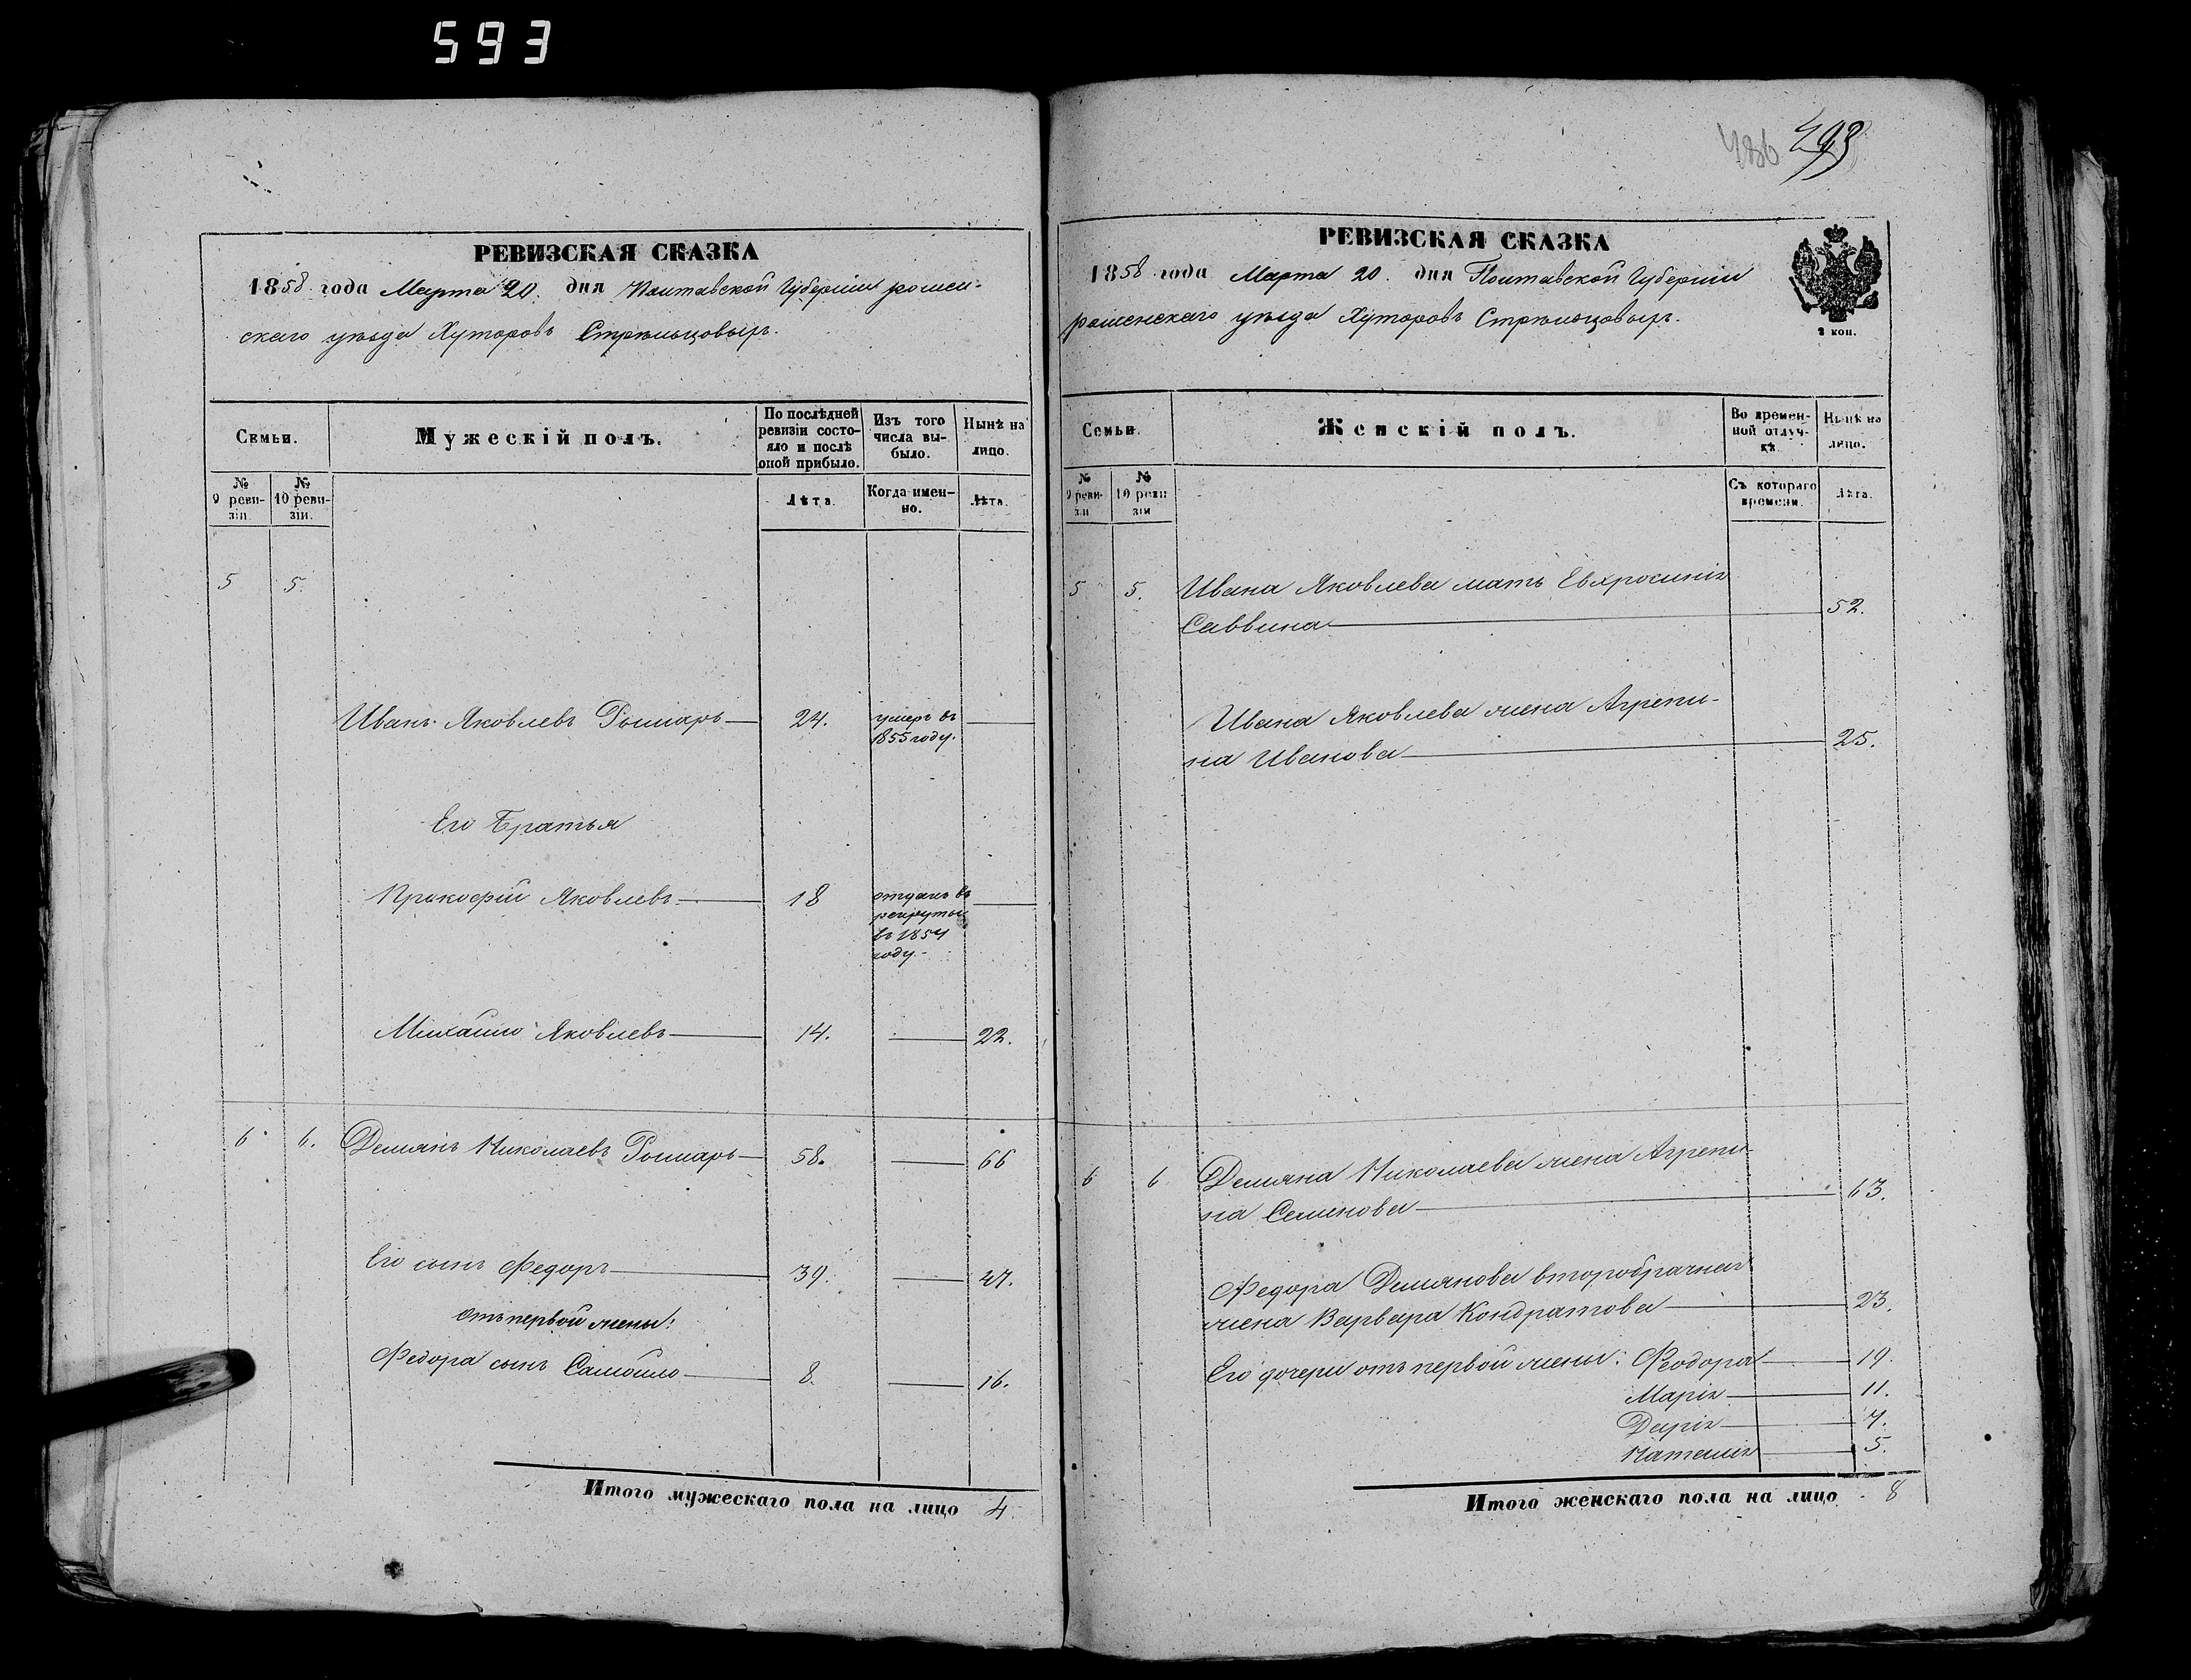 593
486 493
РЕВИЗСКАЯ СКАЗКА
1858 года Марта 20. дня Полтавской Губернiи ромен-
скаго уѣзда Хуторовъ Стрѣльцовыхъ.
Семьи.
Мужескiй полъ.
По послѣдней
ревизiи состо-
яло и послѣ
оной прибыло.
Изъ того
числа вы-
было.
Нынѣ на
лицо.
№
9 реви-
зiи.
№
10 реви-
зiи.
Лѣта.
Когда имен-
но.
Лѣта.
5 5.
Иванъ Яковлевъ Рымарь 24. умеръ въ
1855 году.
Его Братья
Прокофiй Яковлевъ 18 отданъ въ
рекруты
въ 1854
году.
Михайло Яковлевъ 14. 22.
6 6. Демянъ Николаевъ Рымарь 58. 66
Его сынъ Федоръ 39. 47.
отъ первой жены:
Федора сынъ Самойло 8. 16.
Итого мужескаго пола на лицо 4.
РЕВИЗСКАЯ СКАЗКА
1858 года Марта 20. дня Полтавской Губернiи
роменскаго уѣзда Хуторовъ Стрѣльцовыхъ.
2 коп.
Семьи.
Женскiй полъ.
Во времен-
ной отлуч-
кѣ.
Нынѣ на
лицо.
№
9 реви-
зiи
№
10 реви
зiи
Съ котораго
времени.
Лѣта.
5 5. Ивана Яковлева мать Евхросинiя
Саввина 52.
Ивана Яковлева жена Агрепи-
на Иванова 25.
6 6 Демяна Николаева жена Агрепи-
на Семенова 63.
Федора Демянова второбрачная
жена Варвара Кондратова 23.
Его дочери отъ первой жены: Феодора 19.
Марiя 11.
Дарiя 7.
Наталiя 5.
Итого женскаго пола на лицо 8